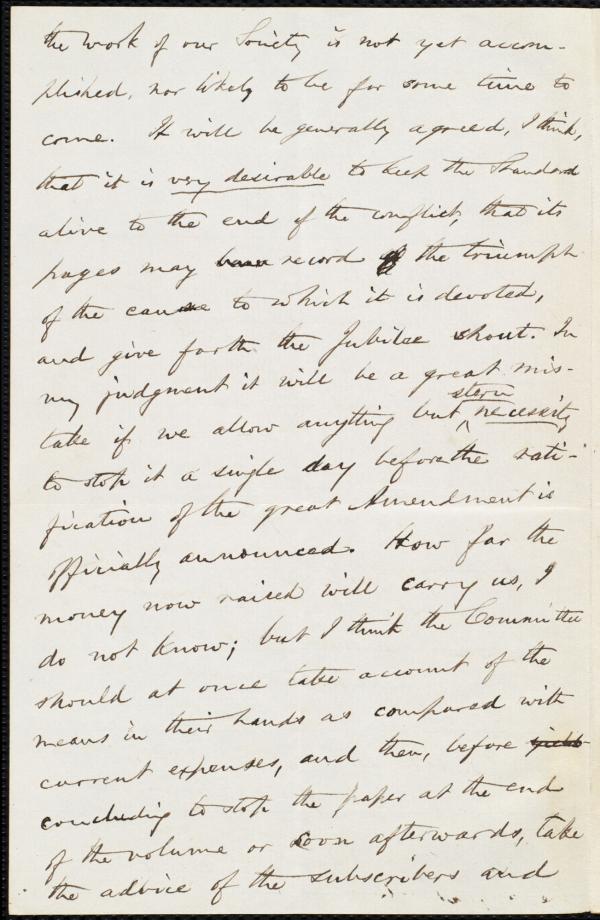 the work of our Society is not yet accom-
plished, nor likely to be for some time to
come. It will be generally agreed, I think,
that it is very desirable to keep the Standard
alive to the end of the conflict, that its
pages may record the triumph
of the cause to which it is devoted,
and give forth the Jubilee shout. In
my judgment it will be a great mis-
take if we allow anything but stern necessity
to stop it a single day before the rati-
fication of the great Amendment is
officially announced. How far the
money now raised will carry us, I
do not know; but I think the Committee
should at once take account of the
means in their hands as compared with
current expenses, and then, before
concluding to stop the paper at the end
of the volume or soon afterwards, take
the advice of the subscribers and